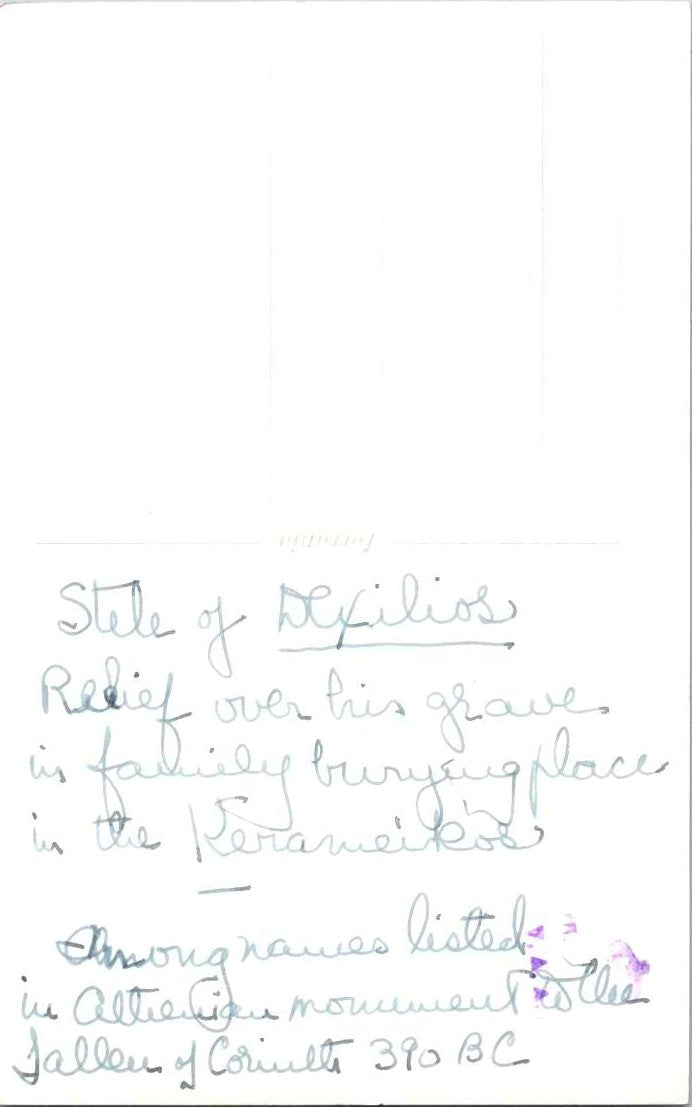 ferrania
Stele of Dexilios
Relief over his grave
in family burying place
in the Kerameikos
Among names listed
in Athenian monument to the
fallen of Corinth 390 BC